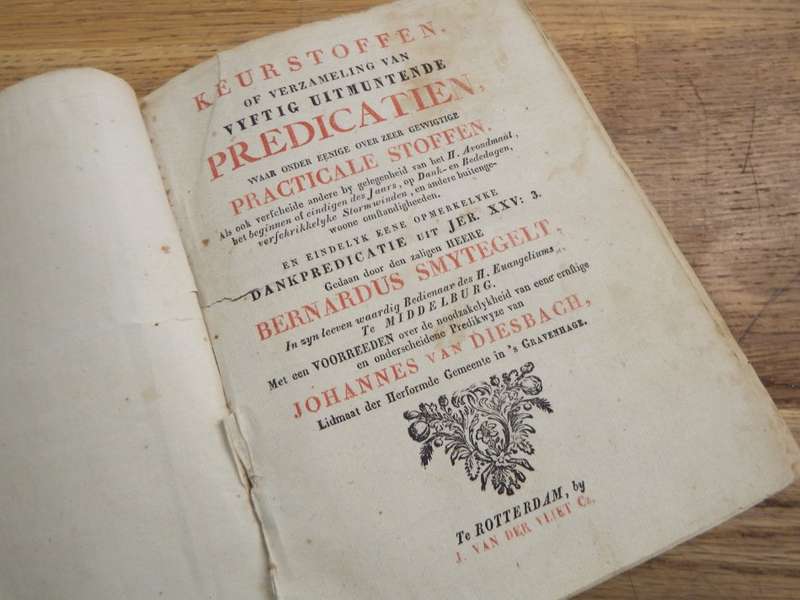 KEURSTOFFEN,
OF VERZAMELING VAN
VYFTIG UITMUNTENDE
PREDICATIEN,
WAAR ONDER EENIGE OVER ZEER GEWIGTIGE
PRACTICALE STOFFEN.
Als ook verscheide andere by gelegenheid van het H. Avondmaal,
het beginnen of eindigen des Jaars, op Dank- en Bededagen,
verschrikkelyke Stormwinden, en andere buitenge-
woone omstandigheeden.
EN EINDELYK EENE OPMERKELYKE
DANKPREDICATIE UIT JER. XXV: 3.
Gedaan door den zaligen HEERE
BERNARDUS SMYTEGELT,
In zyn leeven waardig Bedienaar des H. Euangeliums,
Te MIDDELBURG.
Met een VOORREEDEN over de noodzakelykheid van eene ernstige
en onderscheidene Predikwyze van
JOHANNES VAN DIESBACH,
Lidmaat der Herformde Gemeente in 's GRAVENHAGE.
Te ROTTERDAM, by
J. VAN DER VLIET Cz.